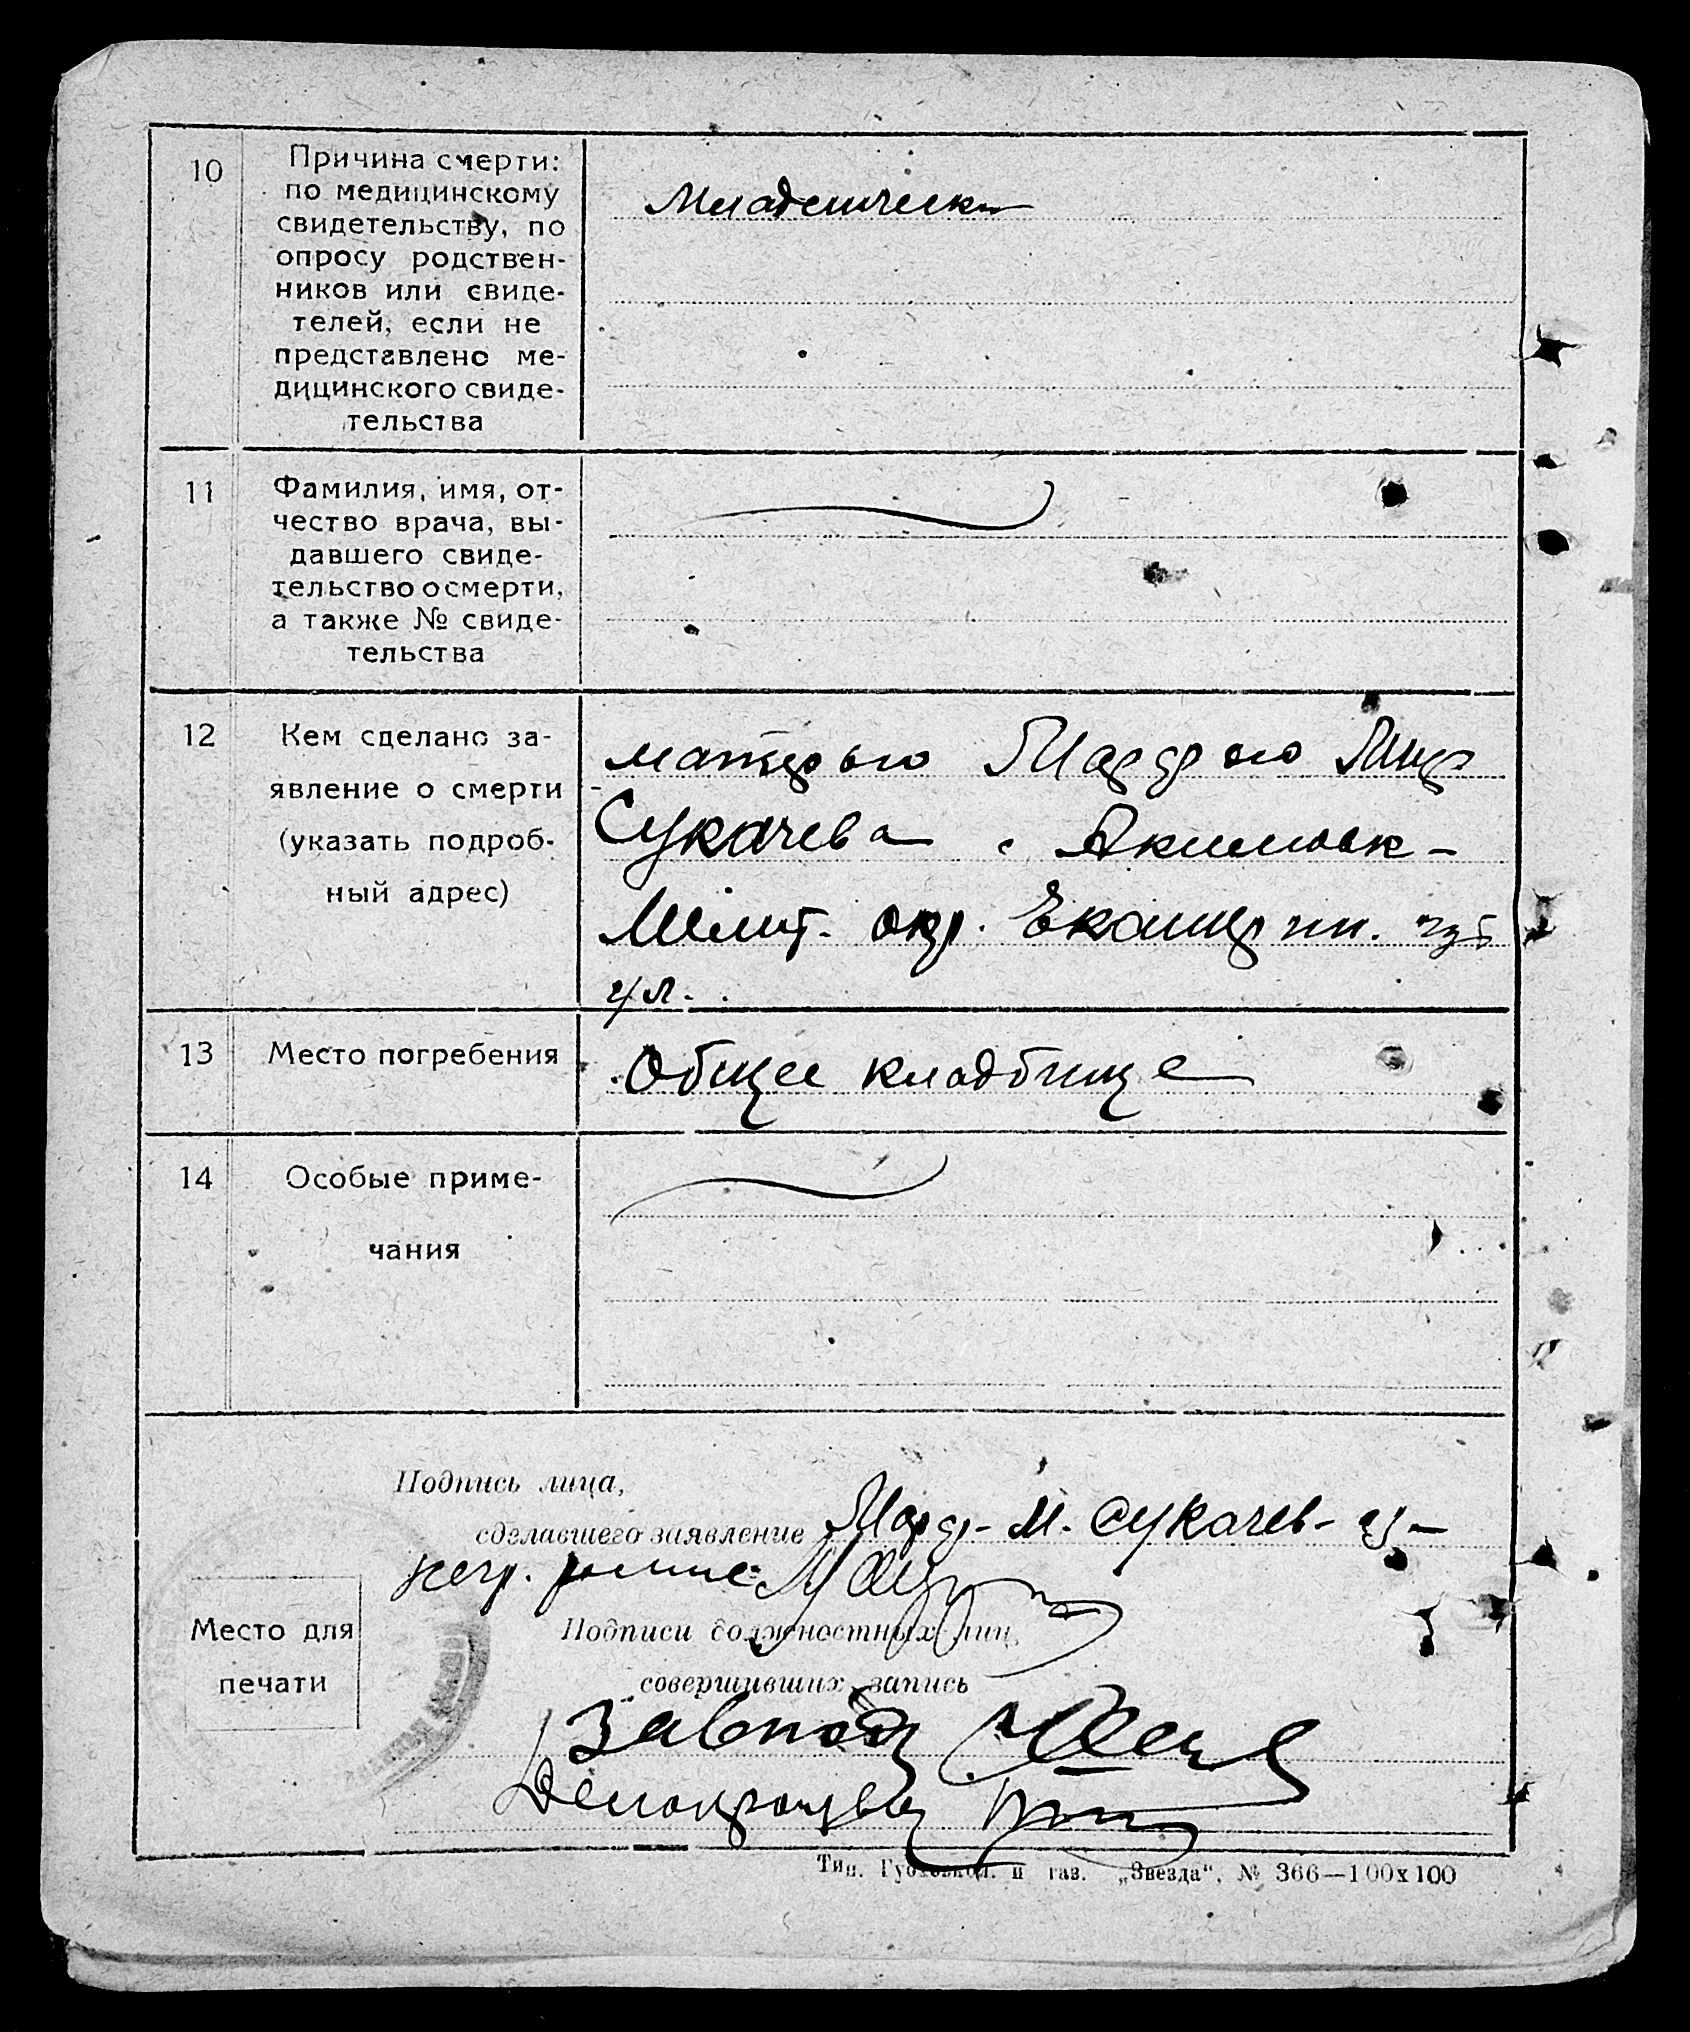 10
Причина смерти:
по медицинскому
свидетельству, по
опросу родствен-
ников или свиде-
телей, если не
представлено ме-
дицинского свиде-
тельства
Младенческ
11
Фамилия, имя, от-
чество врача, вы-
давшего свиде-
тельство о смерти,
а также № свиде-
тельства
12
Кем сделано за-
явление о смерти
(указать подроб-
ный адрес)
матерью
Сукачева Акимовк-
Мелит. окр. Екатерин. губ
13
Место погребения
Общее кладбище
14
Особые приме-
чания
Подпись лица,
сделавшего заявление М. Сукачев-
негр.
Место для
печати
Подписи должностных лиц,
совершивших запись
Завпод
Делопроизв
Тип. Губсовнол. и газ. „Звезда“, № 366—100х100